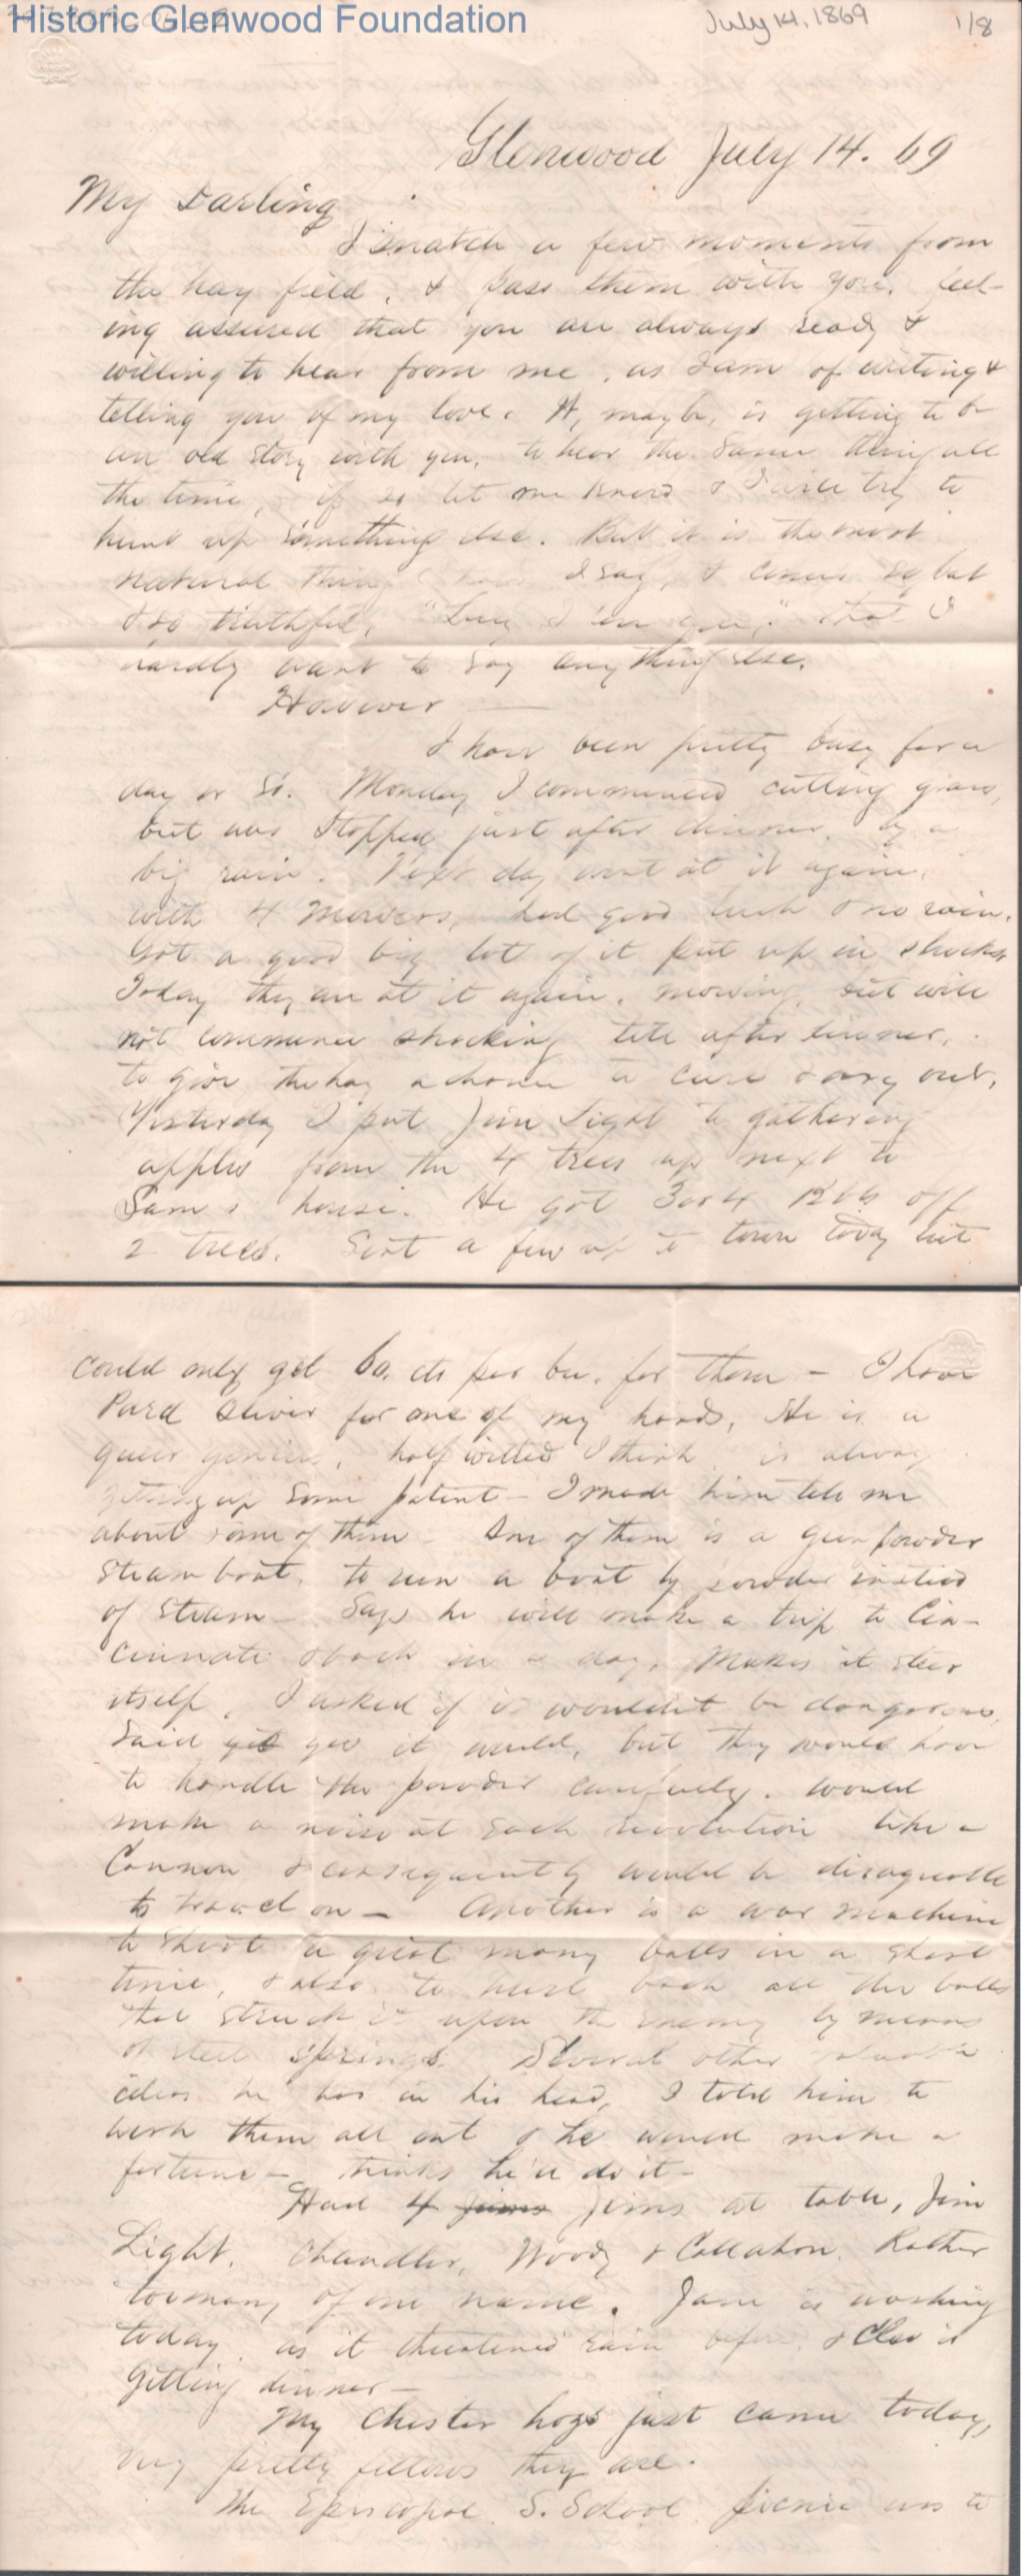 Historic Glenwood Foundation
July 14, 1869
1/8
Glenwood July 14. 69
My Darling
I snatch a few moments from
the hay field, & pass them with you, feel-
ing assured that you are always ready &
willing to hear from me, as I am of writing &
telling you of my love. It, maybe, is getting to be
an old story with you, to hear the same thing all
the time, if so let me know & I will try to
hunt up something else. But it is the most
natural thing I say, & comes so
& so truthful, "Lucy I love you," that I
hardly want to say anything else.
However
I have been pretty busy for a
day or so. Monday I commenced cutting grass,
but was stopped just after dinner, by a
big rain. Next day went at it again,
with 4 mowers, had good luck & no rain.
Got a good big lot of it put up in shocks
Today they are at it again, mowing, but will
not commence shocking till after dinner,
to give the hay a chance to cure & dry out.
Yesterday I put Jim Light to gathering
apples from the 4 trees up next to
Sam's house. He got 3 or 4 Bbls off
2 trees. Sent a few up to town today but
could only get 60. cts per bu. for them - I have
Pard Oliver for one of my hands, He is a
queer genius, half witted I think, is always
getting up some patent - I made him tell me
about some of them One of them is a gun powder
steam boat, to run a boat by powder instead
of steam - Says he will make a trip to Cin-
cinnati & back in a day, Makes it steer
itself. I asked if it wouldn't be dangerous,
said yes it would, but they would have
to handle the powder carefully. Would
make a noise at each revolution like a
Cannon & consequently would be disagreeable
to travel on - Another is a war machine
to shoot a great many balls in a short
time, & also to hurl back all the balls
that struck it upon the enemy by means
of steel springs. Several other valuable
ideas he has in his head, I told him to
work them all out & he would make a
fortune - thinks he'll do it -
Had 4 Jims at table, Jim
Light, Chandler, Woody & Callahan. Rather
too many of one name. Jane is working
today, as it threatened rain before, & Cleo is
getting dinner -
My Chester hogs just came today,
very pretty fellows they are.
The Episcopal S. School picnic was to